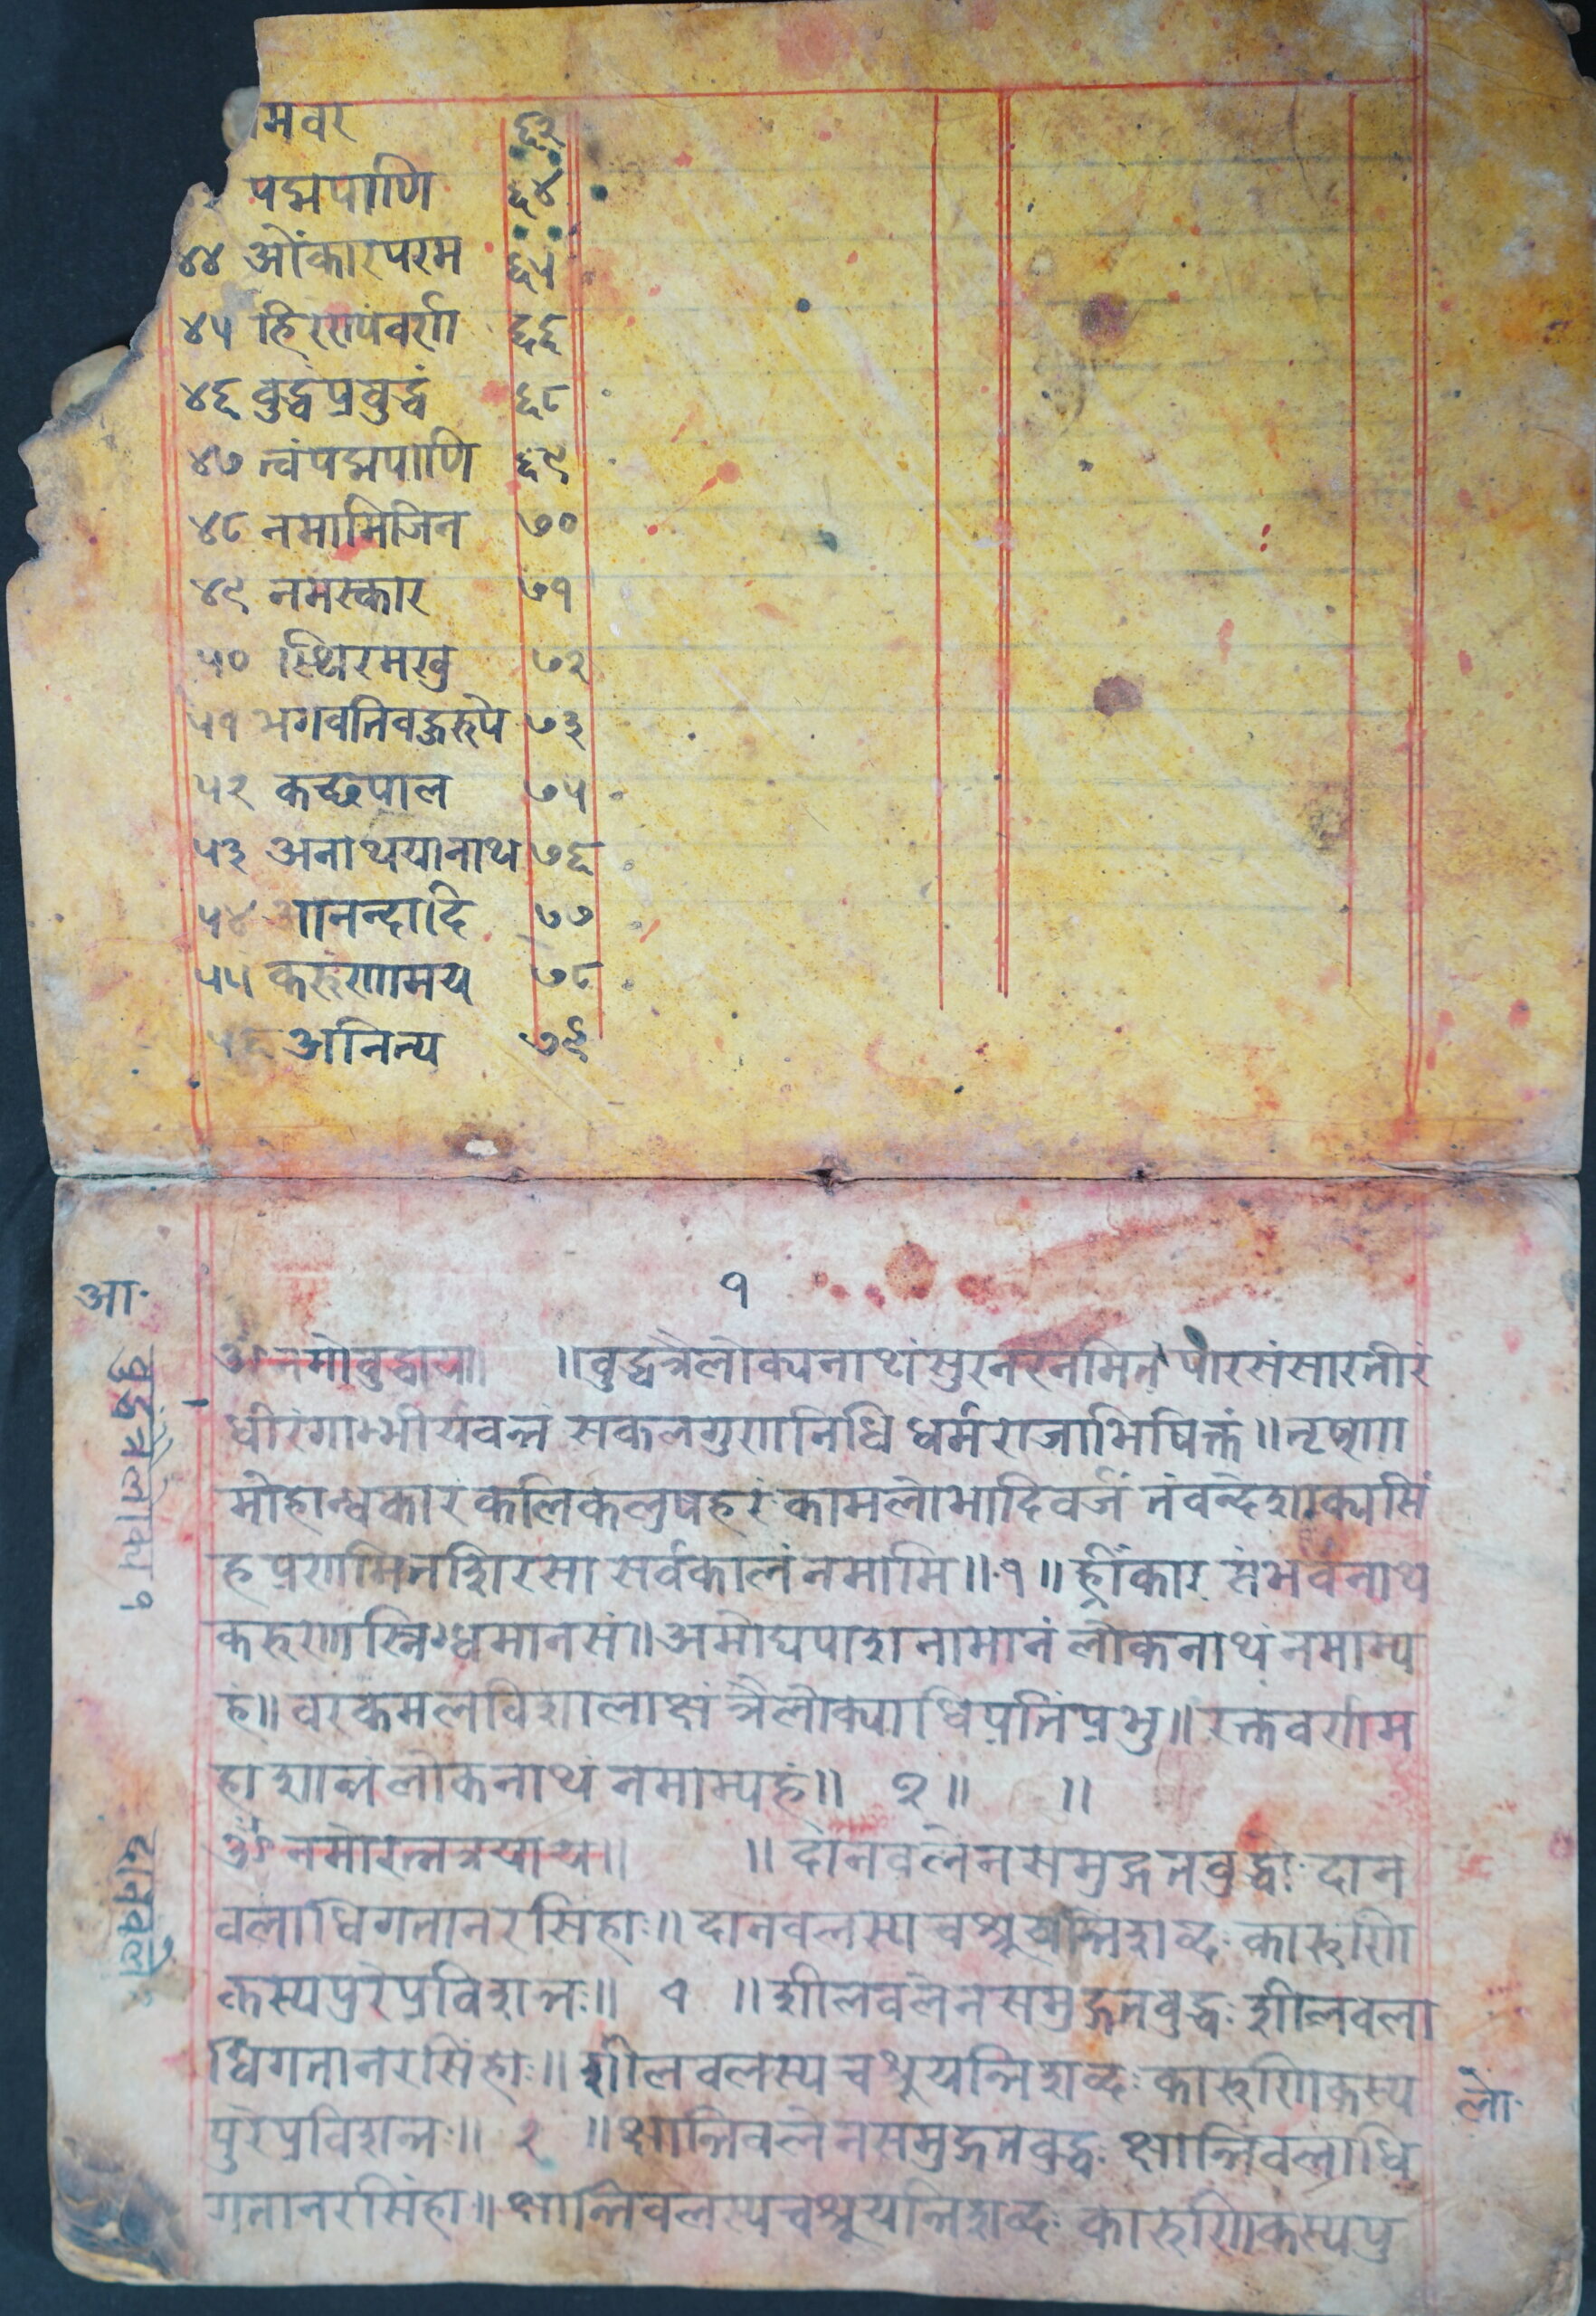 मवर ६३
पद्मपाणि ६४
४४ ओंकारपरम ६५
४५ हिरण्यंवर्ण ६६
४६ वुद्धंप्रवुद्धं ६८
४७ त्वंपद्मपाणि ६९
४८ नमामिजिन ७०
४९ नमस्कार ७१
५० स्थिरमखु ७२
५१ भगवतिवज्ररुपे ७३
५२ कच्छपाल ७५
५३ अनाथयानाथ ७६
५४ आनन्दादि ७७
५५ करुणामय ७८
५६ अनित्य ७९
१
आ.
वुद्धंत्रैलोक्य १
ॐ नमोवुद्धाय॥ ॥वुद्धंत्रैलोक्यनाथंसुरनरनमितं पारसंसारतीरं
धीरंगाम्भीर्यवन्तं सकलगुणनिधि धर्मराजाभिषिक्तं॥तृष्णा
मोहान्धकारं कलिकलुषहरं कामलोभादिवर्जं तंवन्देशाक्यसिं
ह प्रणमितशिरसा सर्वकालंनमामि॥१॥ ह्रींकार संभवंनाथ
करुणास्निग्धमानसं॥अमोघपाशनामानं लोकनाथंनमाम्य
हं॥ वरकमलविशालाक्षं त्रैलोक्याधिपतिंप्रभु॥ रक्तंवर्णम
हाशान्तं लोकनाथं नमाम्यहं॥ २॥ ॥
दानवले.
ॐ नमोरत्नत्रयाय॥ ॥ दानवलेनसमुद्गतवुद्धाः दान
वलाधिगतानरसिंहाः॥ दानवलस्य चश्रूयन्तिशव्दः कारुणि
कस्यपुरेप्रविशन्तः॥ १ ॥शीलवलेनसमुद्गतवुद्धः शीलवला
धिगतानरसिंहाः॥ शीलवलस्य चश्रुयन्तिशव्दः कारुणिकस्य
ला.
पुरेप्रविशन्तः॥ २ ॥क्षान्तिवलेनसमुद्गतवुद्धः क्षान्तिवलाधि
गतानरसिंहा॥ क्षान्तिवलस्यचश्रुयन्तिशव्दः कारुणिकस्यपु